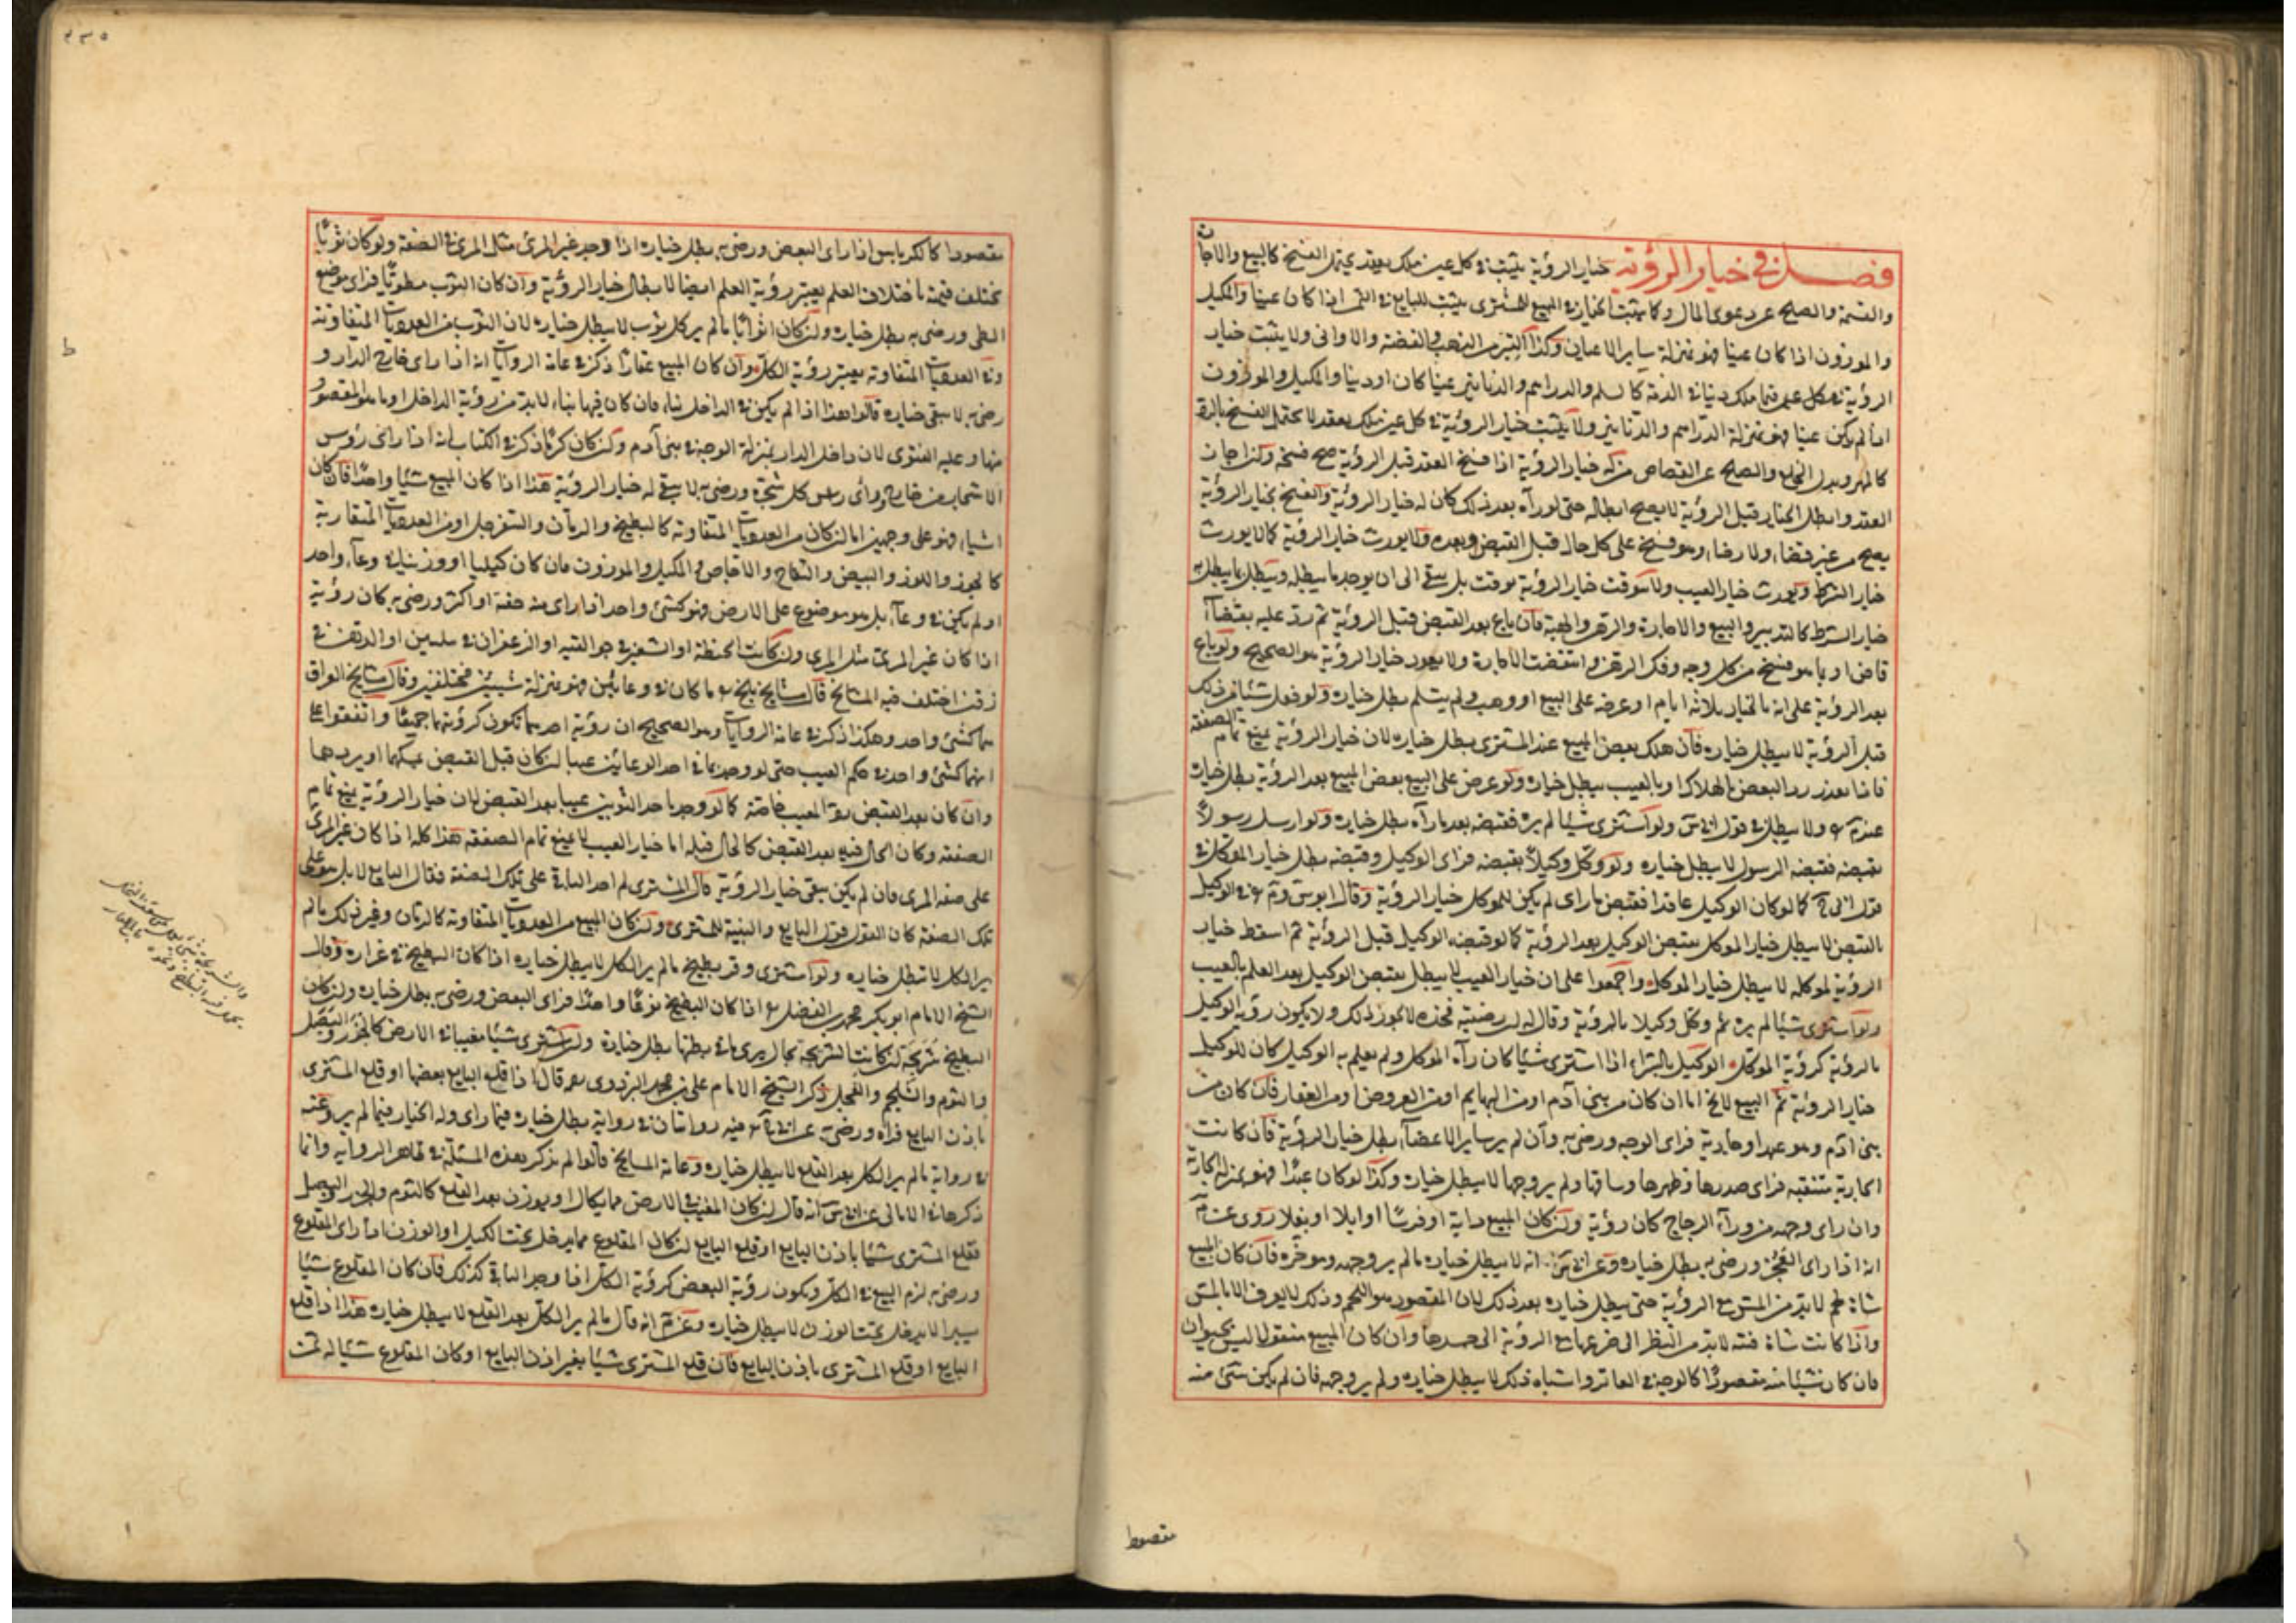 فصل في خيار الرؤية خيار الرؤية يثبت في كل عين ملك بعقد يحتمل الفسخ كالبيع والاجارة
والقسمة والصلح عن دعوى المال وكما يثبت الخيار في المبيع للمشتري يثبت للبايع في الثمن اذا كان عينا والمكيل
والموزون اذا كان عينا فهو بمنزلة ساير الاعيان وكذا التبر من الذهب والفضة والاواني ولا يثبت خيار
الرؤية فيما ملك دينا في الذمة كالسلم والدراهم والدنانير عينا كان او دينا والمكيل والموزون
اذا لم يكن عينا فهو بمنزلة الدراهم والدنانير ولا يثبت خيار الرؤية في كل عين ملك بعقد لا يحتمل الفسخ بالرد
كالمهر وبدل الخلع والصلح عن القصاص من له خيار الرؤية اذا فسخ العقد قبل الرؤية صح فسخه وكذا اجاز
العقد وابطل الخيار قبل الرؤية لا يصح ابطاله حتى لو رآه بعد ذلك كان له خيار الرؤية والفسخ بخيار الرؤية
يصح من غير قضاء ولا رضاء وهو فسخ على كل حال قبل القبض وبعده ولا يورث خيار الرؤية كما لا يورث
خيار الشرط ويورث خيار العيب ولا يتوقت خيار الرؤية بوقت بل يبقى الى ان يوجد ما يبطله ويبطل بما يبطل به
خيار الشرط كالتدبير والبيع والاجارة والرهن والهبة فان باع بعد القبض قبل الرؤية ثم رد عليه بقضاء
قاض او بما هو فسخ من كل وجه وفك الرهن وانتقضت الاجارة ولا يعود خيار الرؤية هو الصحيح ولو باع
بعد الرؤية على انه بالخيار ثلاثة ايام او عرضه على البيع او وهب ولم يسلم بطل خياره ولو فعل شيئا من ذلك
قبل الرؤية لا يبطل خياره فان هلك بعض المبيع عند المشتري بطل خياره لان خيار الرؤية يمنع تمام الصفقة
فاذا تعذر رد البعض بالهلاك او بالعيب يبطل خياره ولو عرض على البيع بعض المبيع بعد الرؤية بطل خياره
عند م ولا يبطل في قول ابي س ولو اشترى شيئا لم يره فقبضه بعد ما رآه بطل خياره ولو ارسل رسولا
بقبضه فقبضه الرسول لا يبطل خياره ولو وكل وكيلا بقبضه فراى الوكيل وقبضه بطل خيار الموكل في
قول ابي ح كما لو كان الوكيل عاقدا فقبض ما راى لم يكن للموكل خيار الرؤية وقال ابو س و م في الوكيل
بالقبض لا يبطل خيار الموكل بقبض الوكيل بعد الرؤية كما لو قبضه الوكيل قبل الرؤية ثم اسقط خيار
الرؤية لموكله لا يبطل خيار الموكل واجمعوا على ان خيار العيب لا يبطل بقبض الوكيل بعد العلم بالعيب
ولو اشترى شيئا لم يره ثم وكل وكيلا بالرؤية وقال له ان رضيته فخذه لا يجوز ذلك ولا يكون رؤية الوكيل
بالرؤية كرؤية الموكل الوكيل بالشراء اذا اشترى شيئا كان رآه الموكل ولم يعلم به الوكيل كان للوكيل
خيار الرؤية ثم المبيع لا يخ اما ان كان من بني آدم او من البهايم او من العروض او من العقار فان كان من
بني آدم وهو عبد او جارية فراى الوجه ورضي به وان لم ير ساير الاعضاء بطل خيار الرؤية فان كانت
الجارية متنقبه فراى صدرها وظهرها وساقها ولم ير وجهها لا يبطل خياره وكذا لو كان عبدا فهو بمنزلة الجارية
وان راى وجهه من وراء الزجاج كان رؤية وان كان المبيع دابة او فرسا او ابلا او بغلا روى عن م
انه اذا راى العجز ورضي به بطل خياره وعن ابي س انه لا يبطل خياره ما لم ير وجهه وموخره فان كان المبيع
شاة لحم لا بد من المس مع الرؤية حتى يبطل خياره بعد ذلك لان المقصود هو اللحم وذلك لا يعرف الا بالمس
واذا كانت شاة قنية لا بد من النظر الى ضرعها مع الرؤية الى جسدها وان كان المبيع منقولا ليس بحيوان
فان كان شيئا منه مقصودا كالوجه في العاتر واشباه ذلك لا يبطل خياره ولم ير وجهه فان لم يكن شيئ منه
مقصودا
٢٣٥
مقصودا كالكرباس اذا راى البعض ورضي به بطل خياره اذا وجد غير المرئ مثل المرئ في الصفة ولو كان ثوبا
تختلف قيمته باختلاف العلم يعتبر رؤية العلم ايضا لابطال خيار الرؤية وان كان الثوب مطويا فراى موضع
الطي ورضي به بطل خياره وان كان اثوابا ما لم ير كل ثوب لا يبطل خياره لان الثوب من العدديات المتفاوتة
وفي العدديات المتفاوته يعتبر رؤية الكل وان كان المبيع عقارا ذكر في عامة الروايات انه اذا راى خارج الدار و
رضي به لا يبقى خياره قالوا هذا اذا لم يكن في الداخل بناء فان كان فيها بناء لا بد من رؤية الداخل او ما هو المقصود
منها وعليه الفتوى لان داخل الدار بمنزلة الوجه في بني آدم وان كان كرما ذكر في الكتاب انه اذا راى رؤس
الاشجار من خارج وراى راس كل شجرة ورضي به لا يبقى له خيار الرؤية هذا اذا كان المبيع شيئا واحدا فان كان
اشياء فهو على وجهين اما ان كان من العدديات المتفاوتة كالبطيخ والرمان والسفرجل او من العدديات المتقاربة
كالجوز واللوز والبيض والاجاص والمكيل والموزون فان كان كيليا او وزنيا في وعاء واحد
او لم يكن في وعاء بل هو موضوع على الارض فهو كشئ واحد اذا راى منه حفنة او اكثر ورضي به كان رؤية
اذا كان غير المرئ مثل المرئ وان كانت الحنطة او الشعير في جوالقيه او الزعفران في سلتين او الدهن في
زقين اختلف فيه المشايخ قال مشايخ بلخ ما كان في وعائين فهو بمنزلة شيئين مختلفين وقال مشايخ العراق
هما كشئ واحد وهكذا ذكر في عامة الروايات وهو الصحيح ان رؤية احدهما تكون كرؤيتهما جميعا واتفقوا على
انهما كشئ واحد في حكم العيب حتى لو وجد بما في احد الوعائين عيبا ان كان قبل القبض يمسكهما او يردهما
وان كان بعد القبض رد المعيب خاصة كما لو وجد باحد الثوبين عيبا بعد القبض لان خيار الرؤية يمنع تمام
الصفقة وكان الحال فيه بعد القبض كالحال قبله اما خيار العيب لا يمنع تمام الصفقة هذا كله اذا كان غير المرئ
على صفة المرئ فان لم يكن يبقى خيار الرؤية قال المشتري لم اجد الباقي على تلك الصفة فقال البايع لا بل هو على
تلك الصفة كان القول قول البايع والبينة للمشتري وان كان المبيع من العدديات المتفاوتة كالرمان وغير ذلك ما لم
ير الكل لا يبطل خياره ولو اشترى وقر بطيخ ما لم ير الكل لا يبطل خياره اذا كان البطيخ في غراره وقال
الشيخ الامام ابو بكر محمد بن الفضل اذا كان البطيخ نوعا واحدا فراى البعض ورضي به بطل خياره وان كان
البطيخ شريجه ان كانت الشريجه بحال يرى ما في بطنها بطل خياره وان اشترى شيئا مغيبا في الارض كالجزر والبصل
والثوم والشلجم والفجل ذكر الشيخ الامام علي بن محمد البزدوي قال اذا قلع البايع بعضها او قلع المشتري
باذن البايع فرآه ورضي به عن ابي ح فيه روايتان في رواية بطل خياره فيما راى وله الخيار فيما لم ير وعنه
في رواية ما لم ير الكل بعد القلع لا يبطل خياره وعامة المشايخ قالوا لم يذكر هذه المسئلة في ظاهر الرواية وانما
ذكرها في الامالي عن ابي س انه قال ان كان المغيب في الارض مما يكال او يوزن بعد القلع كالثوم والجزر والبصل
فقلع المشتري شيئا باذن البايع او قلع البايع ان كان المقلوع مما يدخل تحت الكيل او الوزن اذا راى المقلوع
ورضي به لزم البيع في الكل ويكون رؤية البعض كرؤية الكل اذا وجد الباقي كذلك فان كان المقلوع شيئا
يسيرا لا يدخل تحت الوزن لا يبطل خياره وعن م انه قال ما لم ير الكل بعد القلع لا يبطل خياره هذا اذا قلع
البايع او قلع المشتري باذن البايع فان قلع المشتري شيئا بغير اذن البايع او كان المقلوع شيئا له ثمن
ط